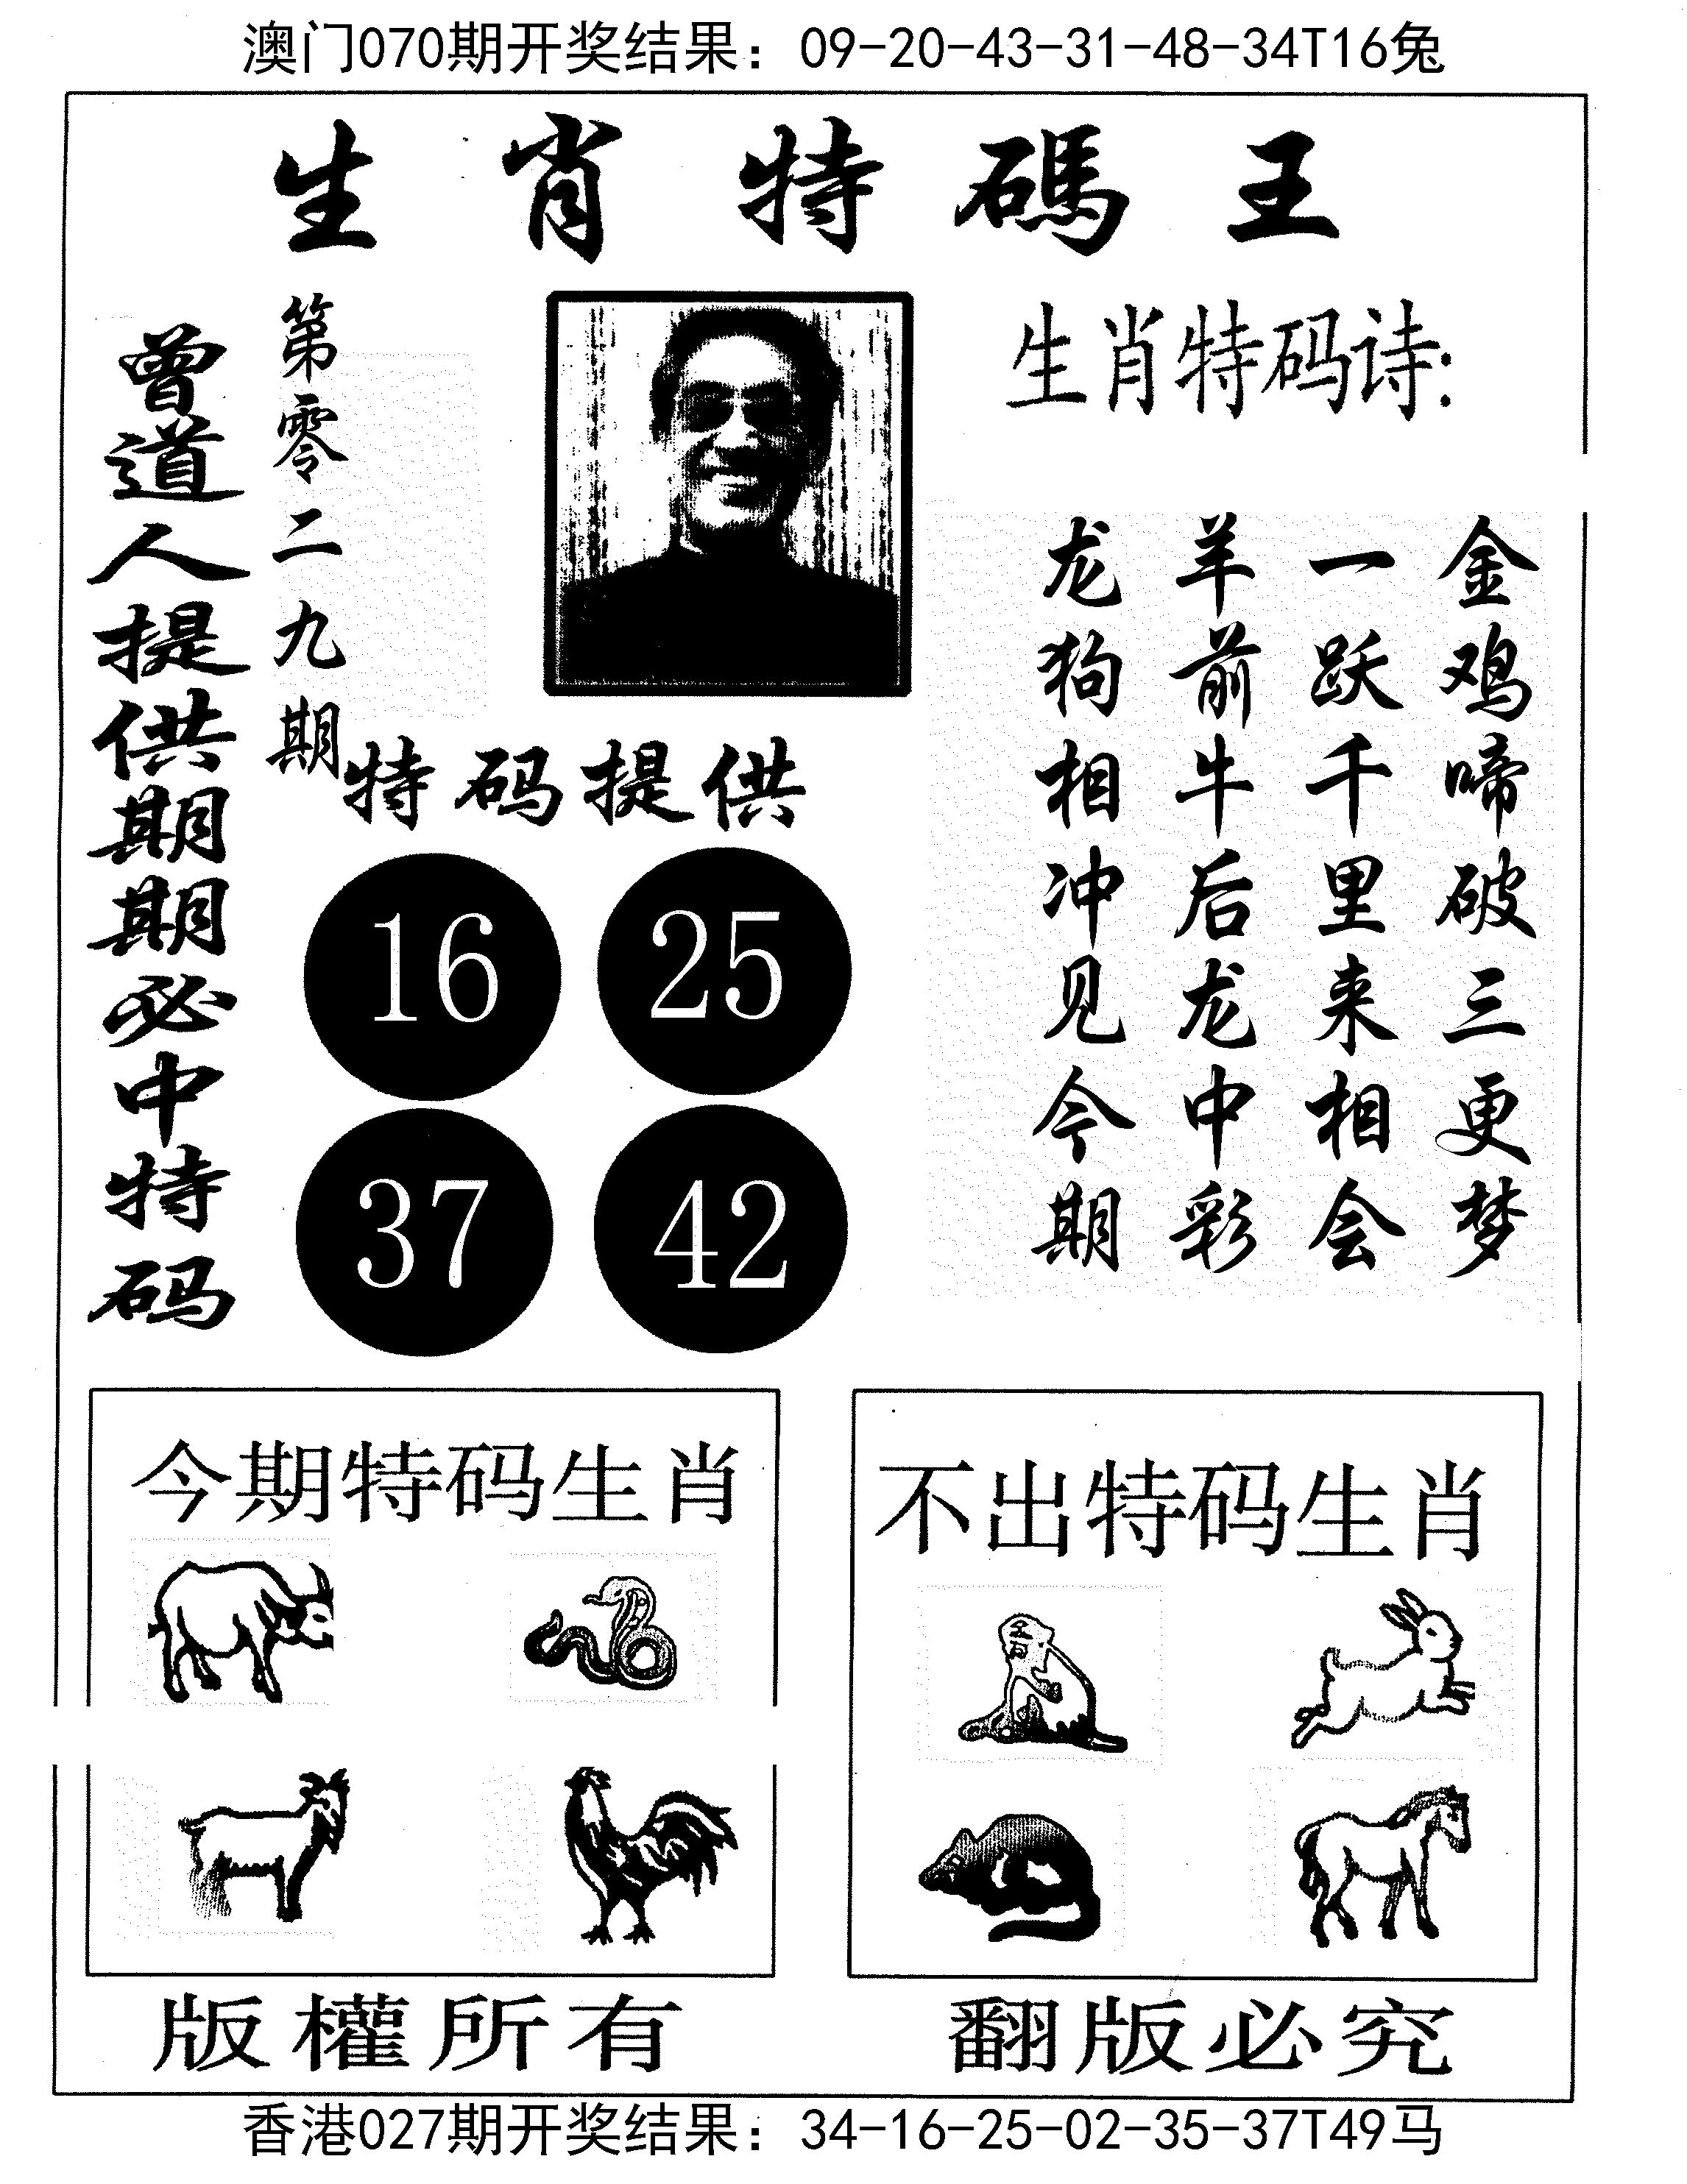 澳门070期开奖结果：09-20-43-31-48-34T16兔
生肖特碼王
曾道人提供期期必中特码
第零二九期
生肖特码诗:
金鸡啼破三更梦
一跃千里来相会
羊前牛后龙中彩
龙狗相冲见今期
特码提供
16 25
37 42
今期特码生肖
不出特码生肖
版權所有
翻版必究
香港027期开奖结果：34-16-25-02-35-37T49马